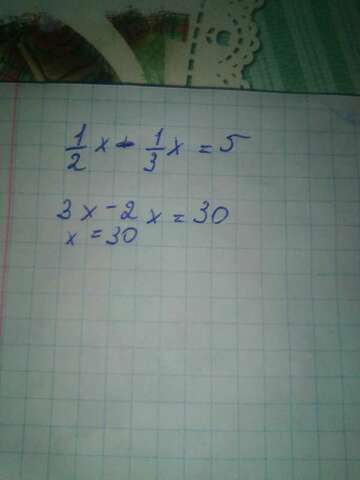 1/2 x - 1/3 x = 5
3x - 2x = 30
x = 30